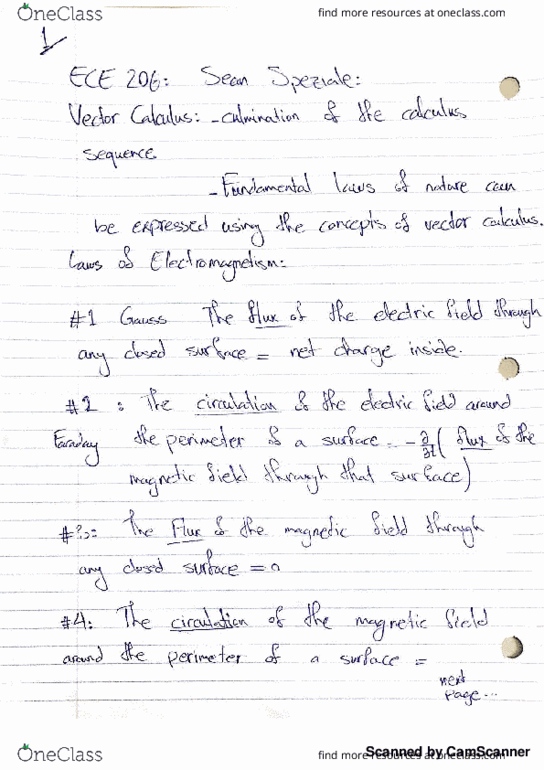 OneClass
find more resources at oneclass.com
1
ECE 206: Sean Speziale:
Vector Calculus: -culmination of the calculus
sequence
-Fundamental laws of nature can
be expressed using the concepts of vector calculus.
Laws of Electromagnetism:
#1 Gauss The flux of the electric field through
any closed surface = net charge inside.
#2 : The circulation of the electric field around
Faraday the perimeter of a surface = -∂/∂t ( flux of the
magnetic field through that surface)
#3: The Flux of the magnetic field through
any closed surface = 0
#4: The circulation of the magnetic field
around the perimeter of a surface =
next
page...
OneClass
find more resources at oneclass.com
Scanned by CamScanner